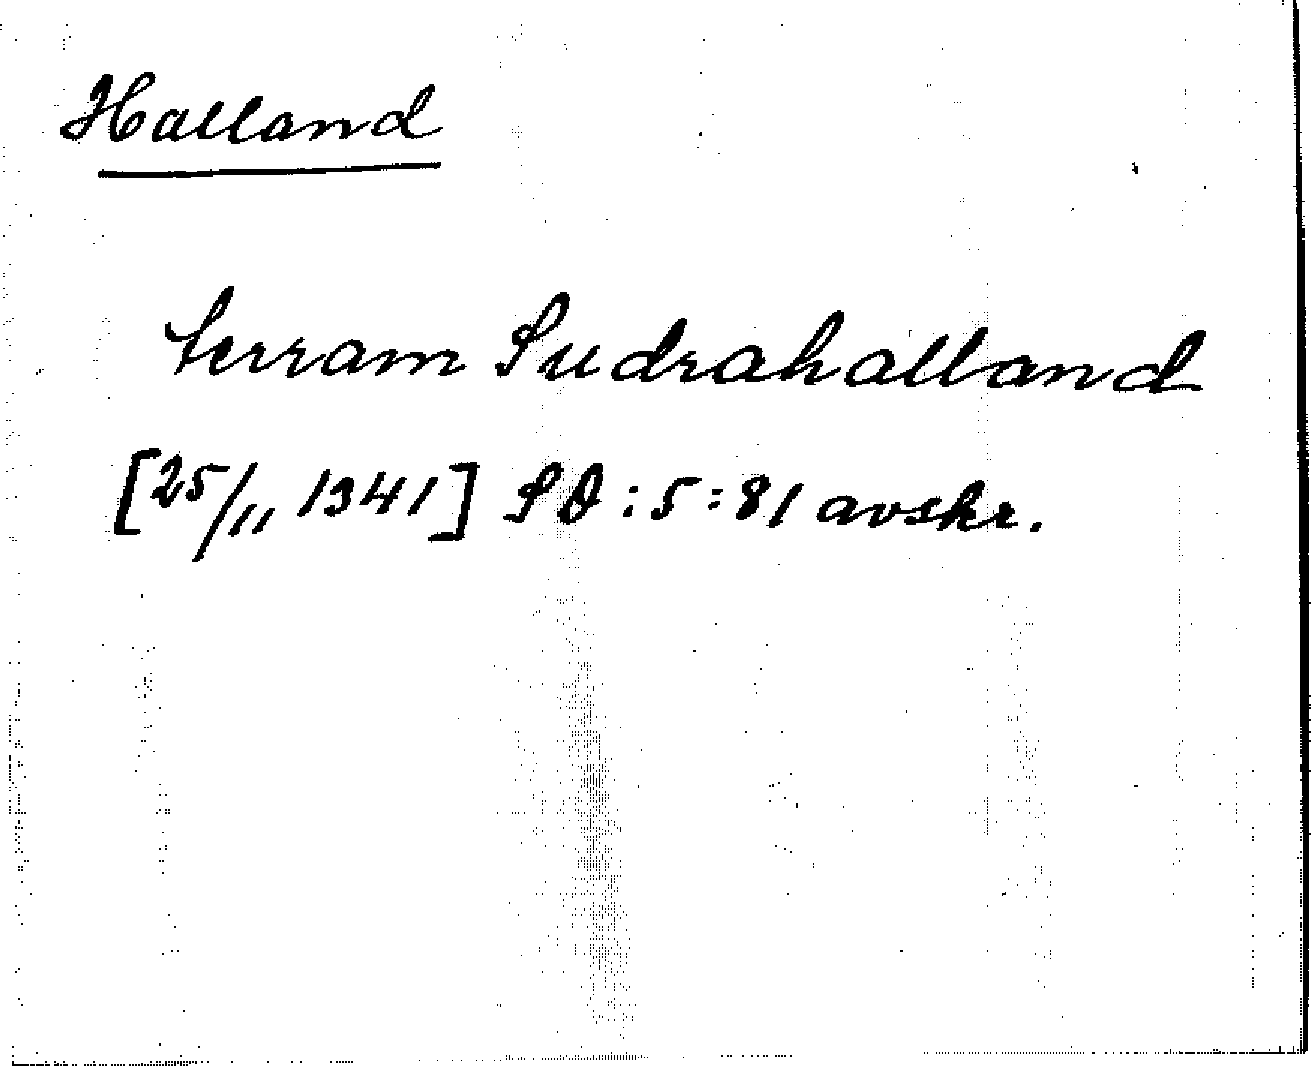 Halland
terram Sudrahalland
[25/11 1341] SD : 5 : 81 avskr.